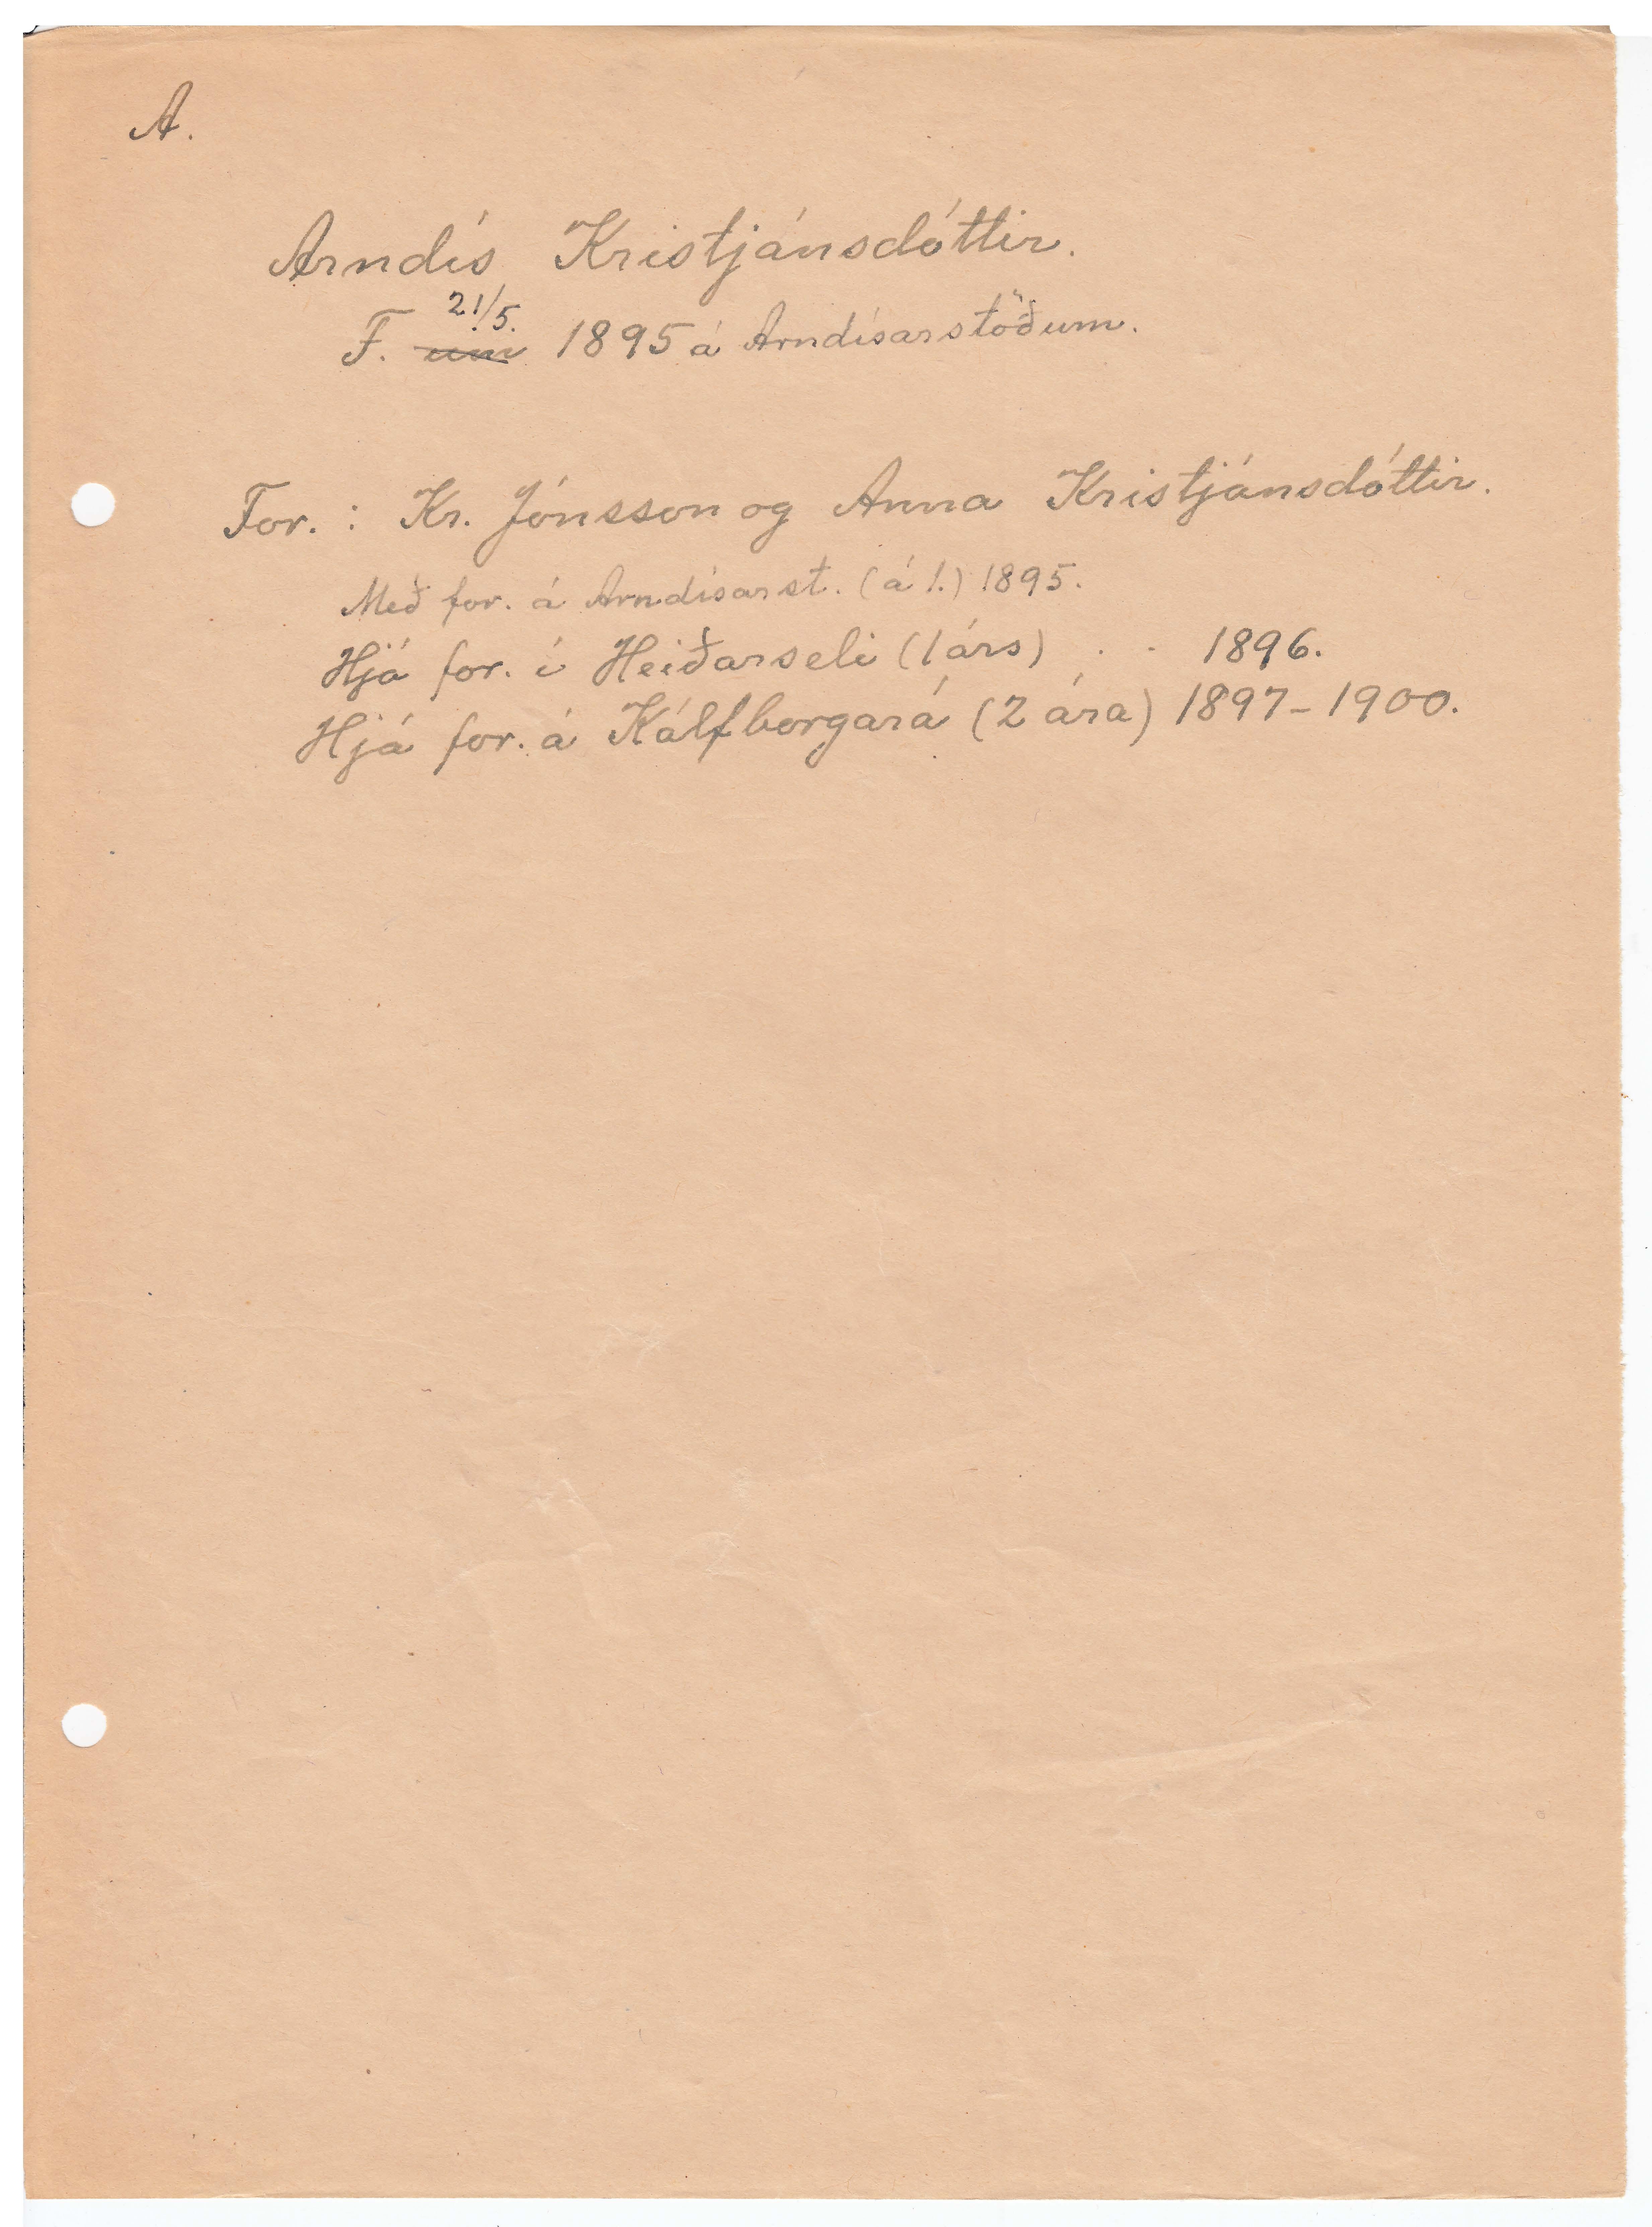 A.
Arndís Kristjánsdóttir.
21/5.
F. um 1895 á Arndísarstöðum.
For. : Kr. Jónsson og Anna Kristjánsdóttir.
Með for. á Arndísarst. (á 1.) 1895.
Hjá for. í Heiðarseli (1 árs) . . 1896.
Hjá for. á Kálfborgará (2 ára) 1897-1900.